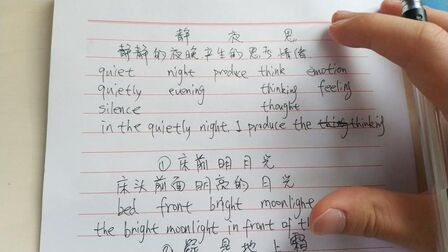 静 夜 思
静静的夜晚产生的思考情绪
quiet night produce think emotion
quietly evening thinking feeling
silence thought
in the quietly night. I produce the thinking
① 床前明月光
床头前面明亮的月光
bed front bright moonlight
the bright moonlight in front of
是地上霜